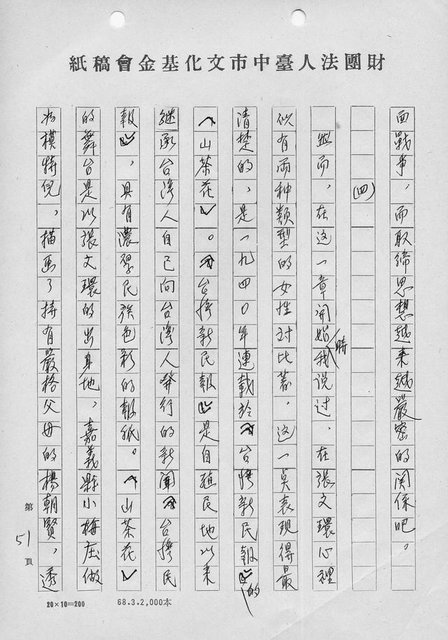 財團法人臺中市文化基金會稿紙
面戰爭，而取締思想越来越嚴密的関係吧。
(四)
然而，在这一章開始時我说过，在張文環心裡
似有兩种類型的女性对比着，这一奌表现得最
清楚的，是一九四〇年連載於《台湾新民報》的
《山茶花》。《台湾新民報》是自殖民地以来
継承台湾人自己向台湾人發行的新聞《台湾民
報》，具有濃厚民族色彩的報紙。《山茶花》
的舞台是以張文環的出身地，嘉義縣小梅庄做
为模特兒，描画了持有嚴格父母的楊朝賢，透
第 51 頁
20×10=200
68.3.2,000本